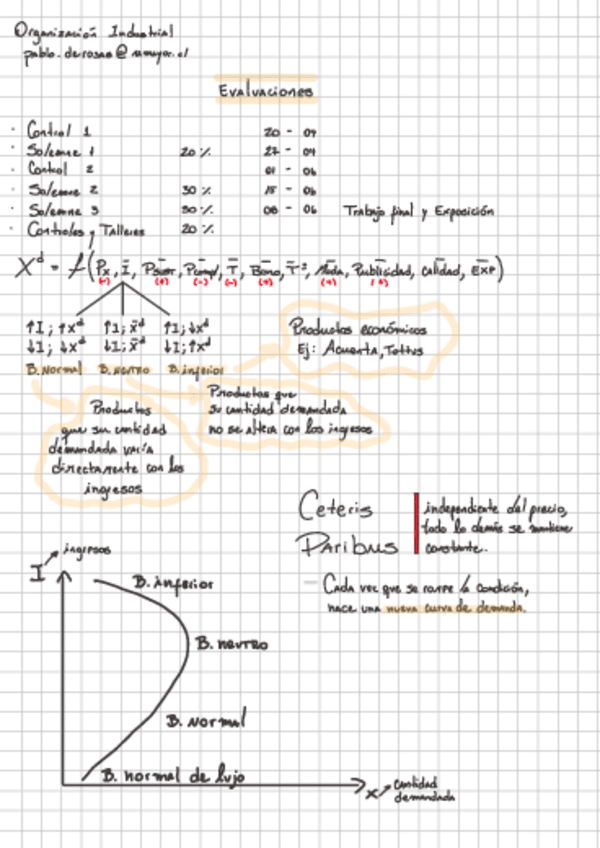 Organización Industrial
pablo.derosas@umayor.cl
Evaluaciones
· Control 1 20 - 04
· Solemne 1 20 % 27 - 04
· Control 2 01 - 06
· Solemne 2 30 % 15 - 06
· Solemne 3 30 % 08 - 06 Trabajo final y Exposición
· Controles y Talleres 20 %
Xᵈ = f(Px, Ī, P̄sust, P̄comp, T̄, Bono, T̄ª, Moda, Publicidad, calidad, EXP)
(-) (+) (-) (-) (+) (+) (+)
↑I; ↑xᵈ ↑I; x̄ᵈ ↑I; ↓xᵈ
↓I; ↓xᵈ ↓I; x̄ᵈ ↓I; ↑xᵈ
B. Normal B. neutro B. inferior
Productos económicos
Ej: Acuenta, Tottus
Productos que
su cantidad demandada
no se altera con los ingresos
Productos
que su cantidad
demandada varía
directamente con los
ingresos
Ceteris
Paribus
independiente del precio,
todo lo demás se mantiene
constante.
- Cada vez que se rompe la condición,
nace una nueva curva de demanda.
I ingresos
B. inferior
B. neutro
B. normal
B. normal de lujo
x cantidad
demandada